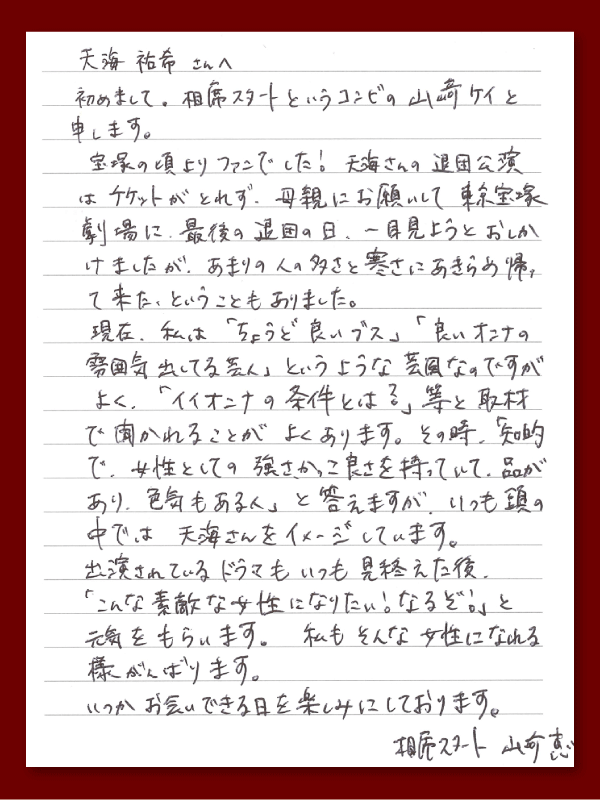 天海 祐希 さんへ
初めまして。相席スタートというコンビの 山﨑ケイと
申します。
宝塚の頃よりファンでした! 天海さんの退団公演
はチケットがとれず、母親にお願いして 東京宝塚
劇場に、最後の退団の日、一目見ようとおしか
けましたが、あまりの人の多さと寒さにあきらめ帰っ
て来た、ということもありました。
現在、私は「ちょうど良いブス」「良いオンナの
雰囲気出してる芸人」というような芸風なのですが
よく、「イイオンナの条件とは?」等と取材
で聞かれることが よくあります。その時、「知的
で、女性としての強さかっこ良さを持っていて、品が
あり、色気もある人」と答えますが、いつも頭の
中では 天海さんをイメージしています。
出演されているドラマもいつも見終えた後、
「こんな素敵な女性になりたい!なるぞ!」と
元気をもらいます。 私もそんな女性になれる
様がんばります。
いつかお会いできる日を楽しみにしております。
相席スタート 山﨑 恵